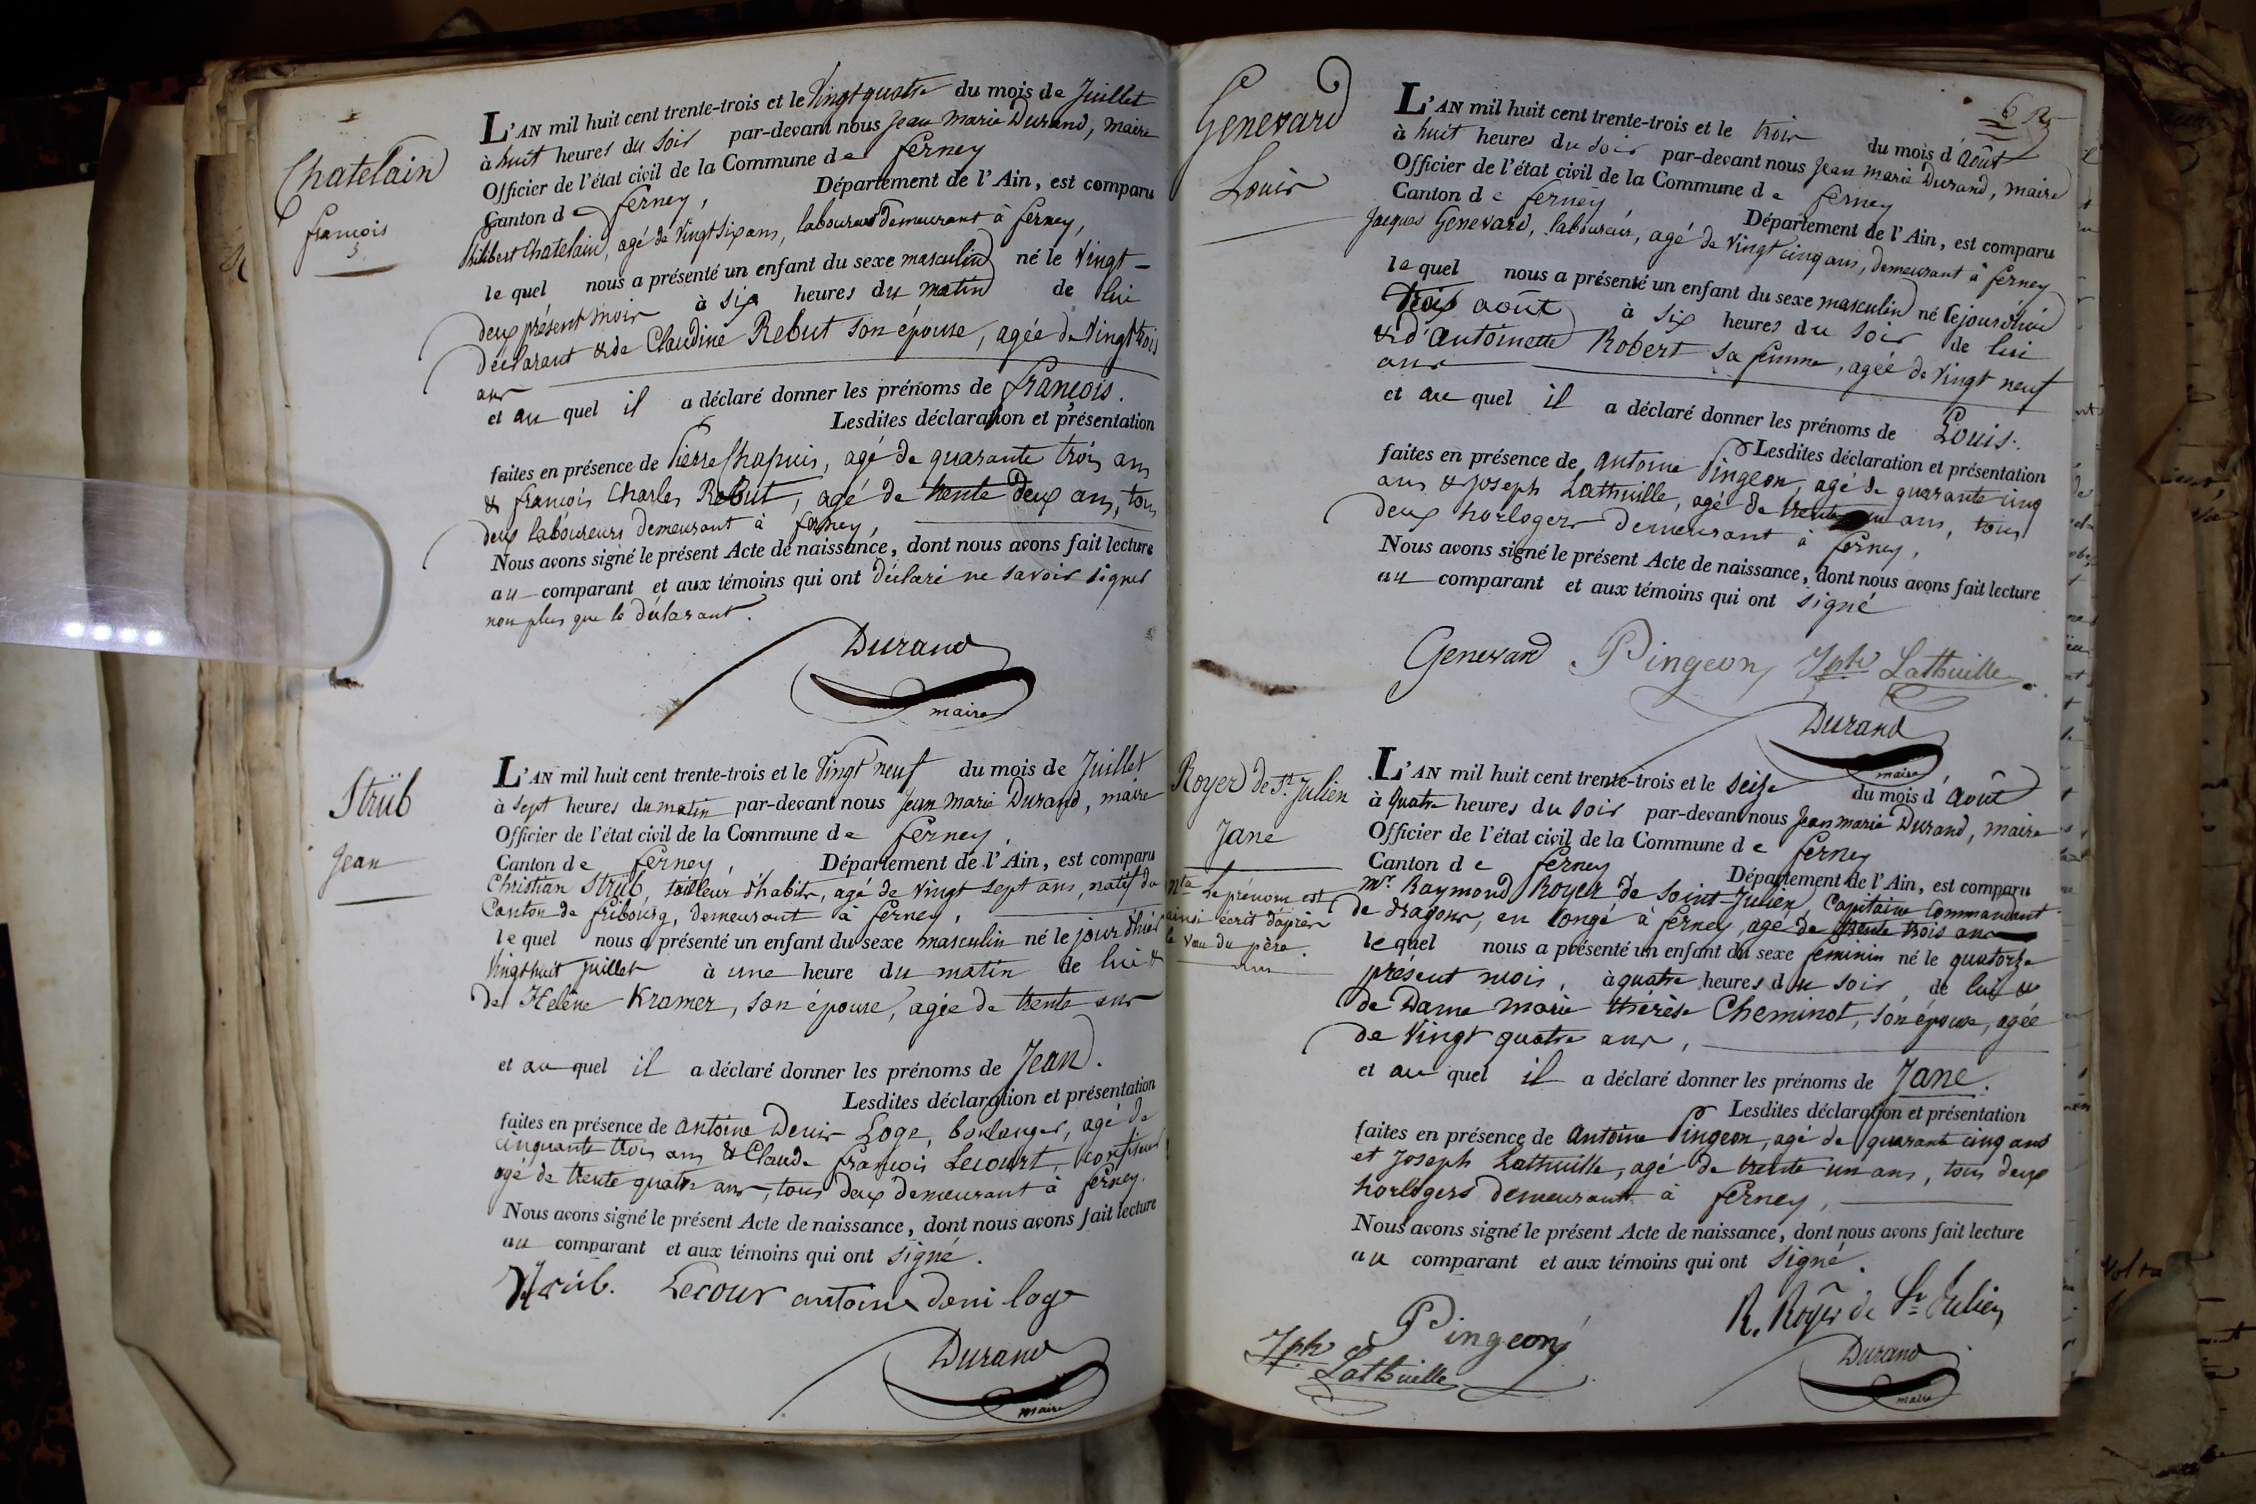 Chatelain
françois
L'AN mil huit cent trente-trois et le Vingt quatre du mois de Juillet
à huit heures du soir par-devant nous Jean Marie Durand, maire
Officier de l'état civil de la Commune de ferney
Canton de ferney, Département de l'Ain, est comparu
Philibert Chatelain, agé de Vingt six ans, laboureur demeurant à ferney,
lequel nous a présenté un enfant du sexe masculin né le Vingt-
deux présent mois à six heures du matin de lui
déclarant & de Claudine Rebut son épouse, agée de Vingt trois
ans
et au quel il a déclaré donner les prénoms de François.
Lesdites déclaration et présentation
faites en présence de Pierre Chapuis, agé de quarante trois ans
& françois Charles Rebut, agé de trente deux ans, tous
deux laboureurs demeurant à ferney,
Nous avons signé le présent Acte de naissance, dont nous avons fait lecture
au comparant et aux témoins qui ont déclaré ne savoir signer
non plus que le déclarant.
Durand
maire
Strüb
Jean
L'AN mil huit cent trente-trois et le Vingt neuf du mois de Juillet
à sept heures du matin par-devant nous Jean Marie Durand, maire
Officier de l'état civil de la Commune de ferney,
Canton de ferney, Département de l'Ain, est comparu
Christian Strüb, tailleur d'habits, agé de Vingt sept ans, natif du
Canton de fribourg, demeurant à ferney,
lequel nous a présenté un enfant du sexe masculin né le jour d'hier
Vingt huit Juillet à une heure du matin de lui &
de Helène Kramer, son épouse, agée de trente ans
et au quel il a déclaré donner les prénoms de Jean.
Lesdites déclaration et présentation
faites en présence de Antoine Denis Loge, boulanger, agé de
cinquante trois ans & Claude françois Lecourt, confiseur
agé de trente quatre ans, tous deux demeurant à ferney.
Nous avons signé le présent Acte de naissance, dont nous avons fait lecture
au comparant et aux témoins qui ont signé.
Strüb. Lecour antoine deni loge
Durand
maire
6
Genevard
Louis
L'AN mil huit cent trente-trois et le trois du mois d'Août
à huit heures du soir par-devant nous Jean Marie Durand, maire
Officier de l'état civil de la Commune de ferney
Canton de ferney Département de l'Ain, est comparu
Jacques Genevard, laboureur, agé de Vingt cinq ans, demeurant à ferney
lequel nous a présenté un enfant du sexe masculin né le jourd'hui
trois août à six heures du soir de lui
& d'Antoinette Robert sa femme, agée de Vingt neuf
ans
et au quel il a déclaré donner les prénoms de Louis.
Lesdites déclaration et présentation
faites en présence de Antoine Pingeon, agé de quarante cinq
ans & Joseph Lathuille, agé de trente un ans, tous
deux horlogers demeurant à ferney,
Nous avons signé le présent Acte de naissance, dont nous avons fait lecture
au comparant et aux témoins qui ont signé
Genevard Pingeon Jph Lathuille
Durand
maire
Royer de St. Julien
Jane
Nta Le prénom est
ainsi écrit d'après
le vœu du père.
L'AN mil huit cent trente-trois et le seize du mois d'Août
à quatre heures du soir par-devant nous Jean Marie Durand, maire
Officier de l'état civil de la Commune de ferney
Canton de ferney Département de l'Ain, est comparu
Mr. Raymond Royer de Saint-Julien, Capitaine Commandant
de dragons, en congé à ferney, agé de trente trois ans
lequel nous a présenté un enfant du sexe feminin né le quatorze
présent mois, à quatre heures du soir, de lui &
de Dame Marie thérèse Cheminot, son épouse, agée
de Vingt quatre ans,
et au quel il a déclaré donner les prénoms de Jane.
Lesdites déclaration et présentation
faites en présence de Antoine Pingeon, agé de quarante cinq ans
et Joseph Lathuille, agé de trente un ans, tous deux
horlogers demeurant à ferney,
Nous avons signé le présent Acte de naissance, dont nous avons fait lecture
au comparant et aux témoins qui ont signé.
R. Royer de St. Julien
Pingeon
Jph Lathuille
Durand
maire